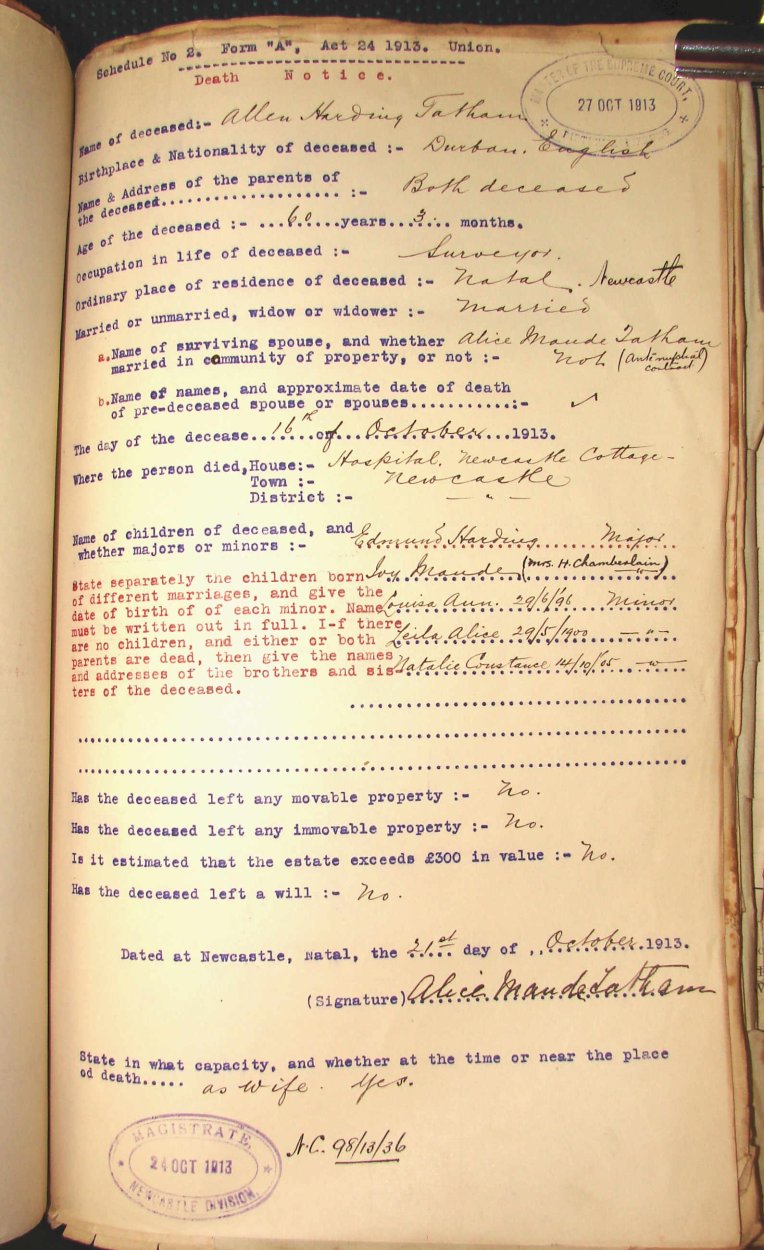 Schedule No 2. Form "A", Act 24 1913. Union.
Death Notice.
MASTER OF THE SUPREME COURT,
27 OCT 1913
Name of deceased:- Allen Harding Tatham
Birthplace & Nationality of deceased :- Durban. English
Name & Address of the parents of
the deceased.................... :- Both deceased
Age of the deceased :- ...60.....years...3.... months.
Occupation in life of deceased :- Surveyor.
Ordinary place of residence of deceased :- Natal. Newcastle
Married or unmarried, widow or widower :- Married
a. Name of surviving spouse, and whether Alice Maude Tatham
married in community of property, or not :- Not (Antenuptial contract)
b. Name of names, and approximate date of death
of pre-deceased spouse or spouses............:-
The day of the decease...16th...of...October...1913.
Where the person died, House:- Hospital. Newcastle Cottage-
Town :- Newcastle
District :- — " —
Name of children of deceased, and Edmund Harding Major
whether majors or minors :-
State separately the children born Ivy Maude (Mrs. H. Chamberlain) — " —
of different marriages, and give the
date of birth of of each minor. Name Louisa Ann. 29/6/96 Minor
must be written out in full. I-f there
are no children, and either or both Leila Alice 29/5/1900 — " —
parents are dead, then give the names
and addresses of the brothers and sis Natalie Constance 14/10/05 — " —
ters of the deceased.
Has the deceased left any movable property :- No.
Has the deceased left any immovable property :- No.
Is it estimated that the estate exceeds £300 in value :- No.
Has the deceased left a will :- No.
Dated at Newcastle, Natal, the 21st day of ,.October.1913.
(Signature) Alice Maude Tatham
State in what capacity, and whether at the time or near the place
od death..... as wife. Yes.
N.C. 98/13/36
MAGISTRATE,
24 OCT 1913
NEWCASTLE DIVISION.